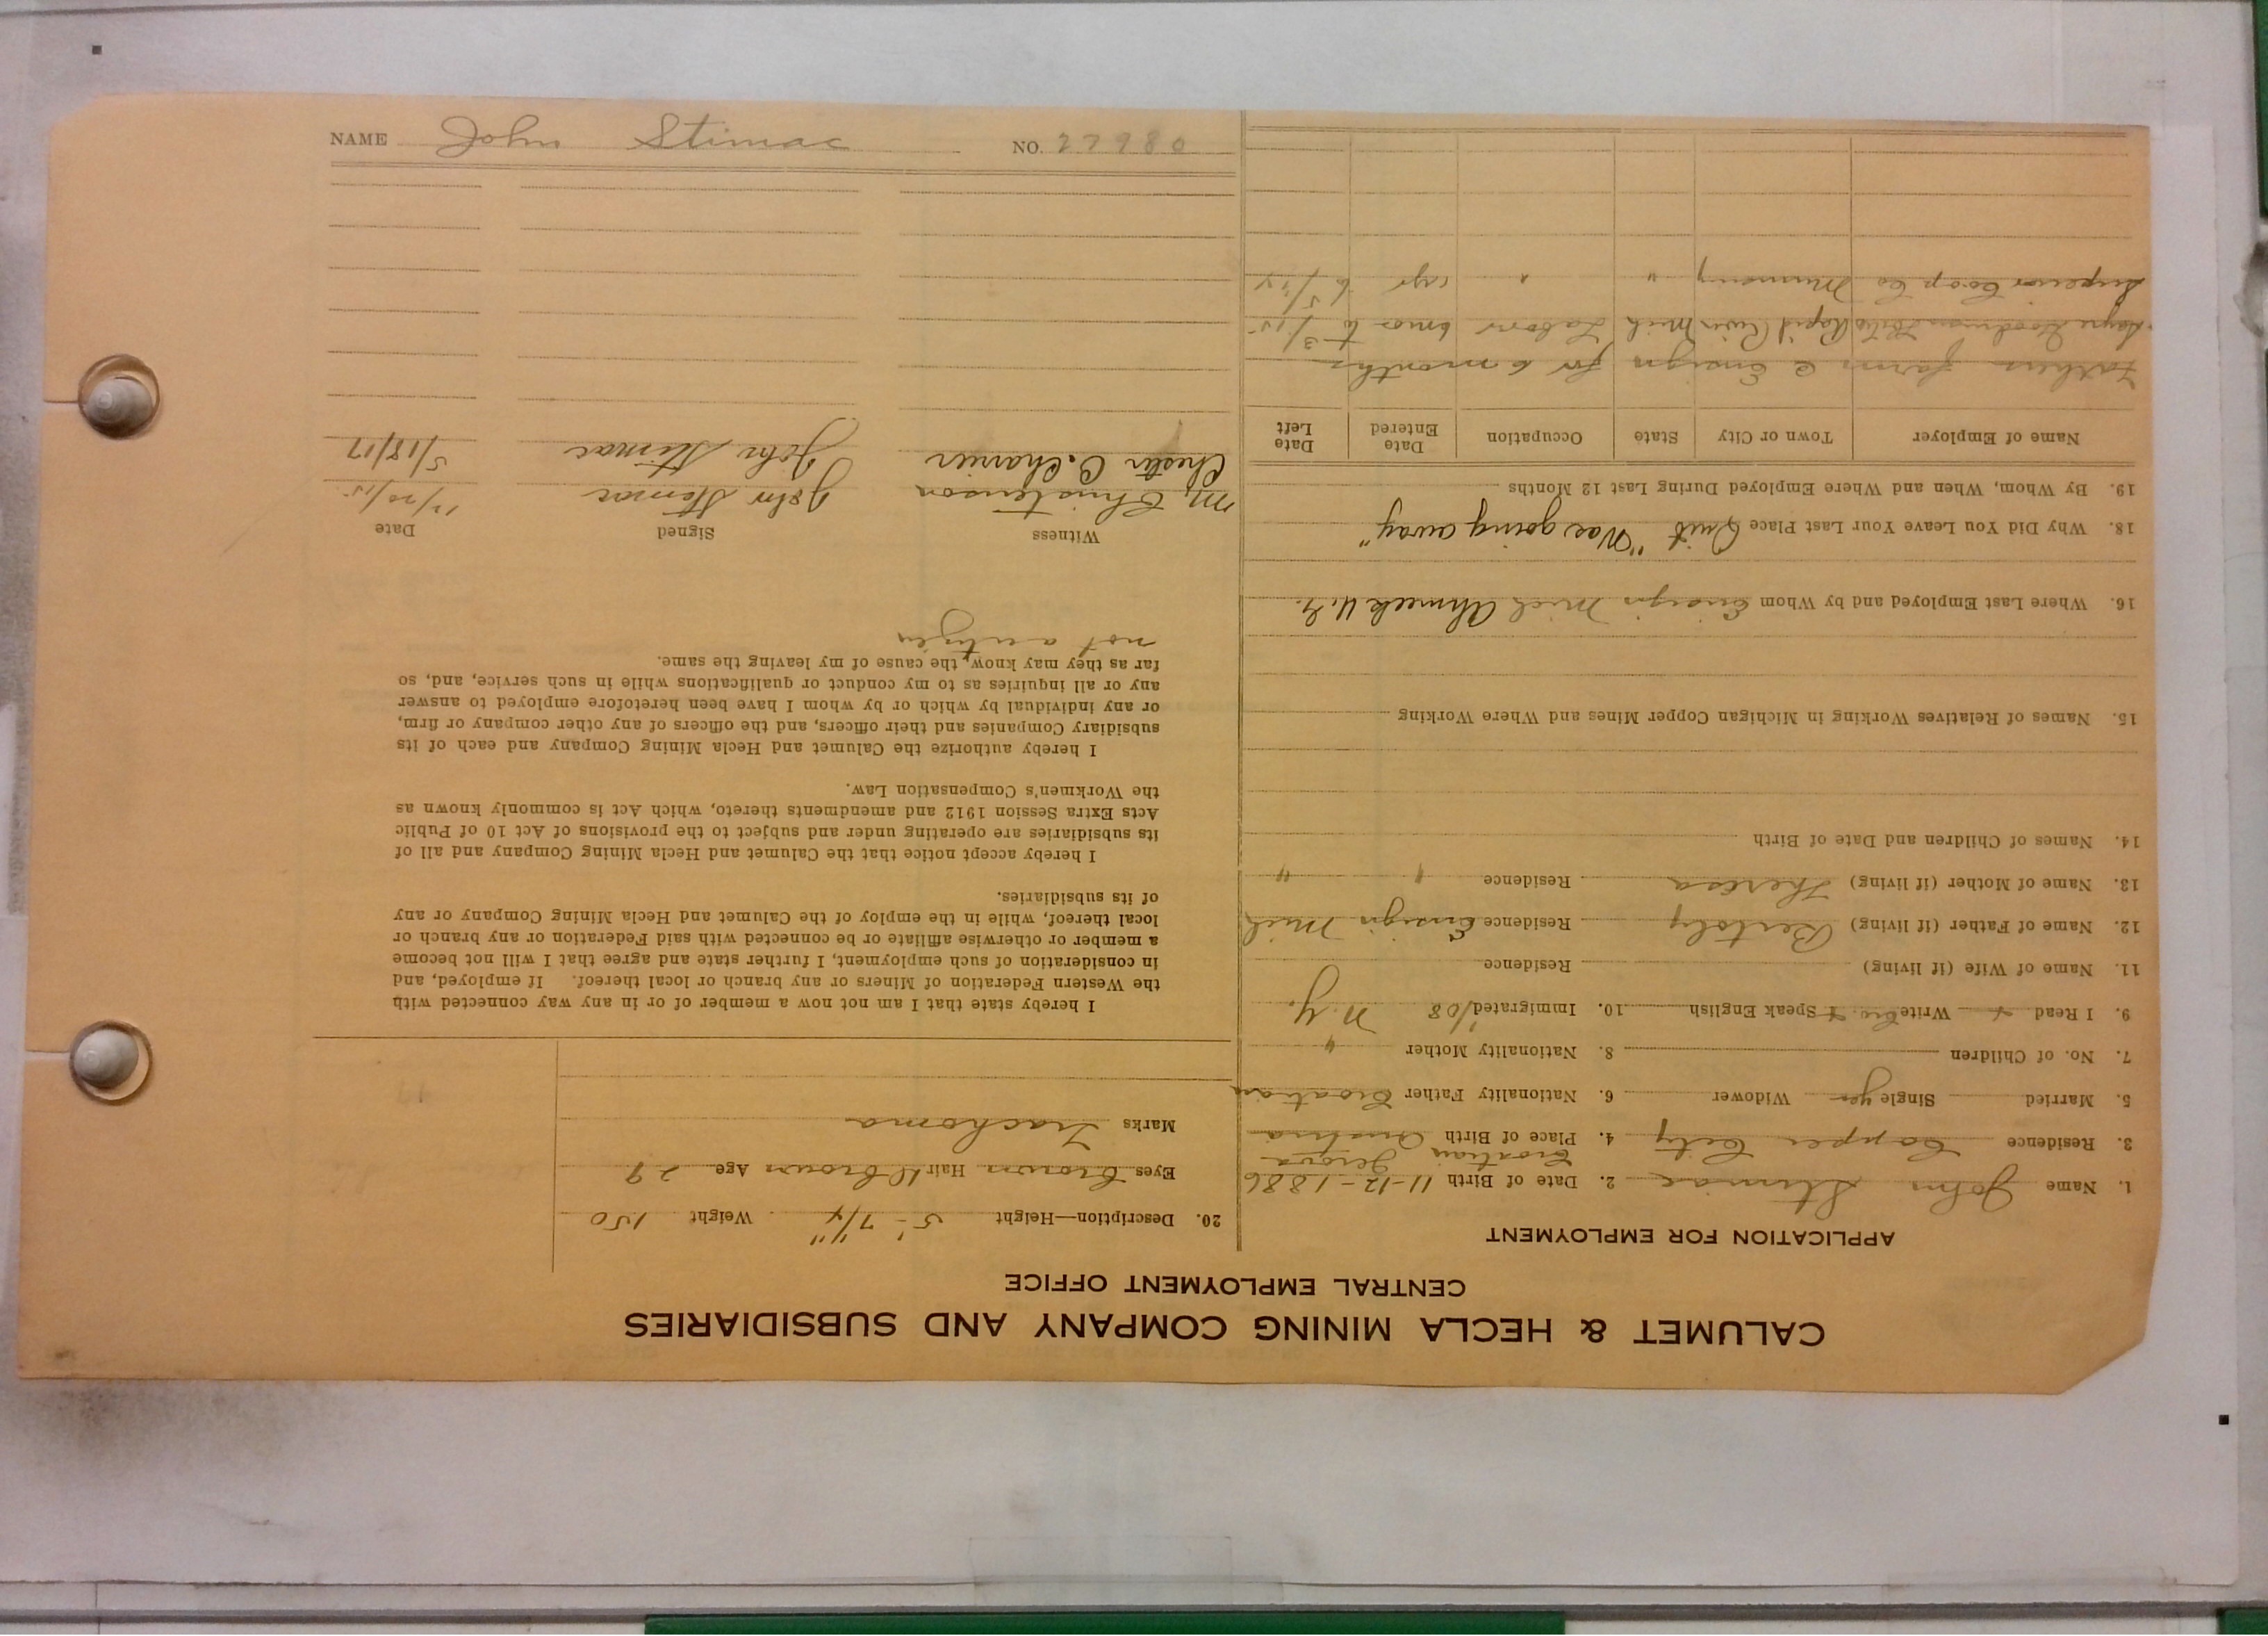 NAME John Stimac NO. 27980
CALUMET & HECLA MINING COMPANY AND SUBSIDIARIES
CENTRAL EMPLOYMENT OFFICE
APPLICATION FOR EMPLOYMENT
1. Name John Stimac 2. Date of Birth 11-12-1886
Croatian
3. Residence Copper City 4. Place of Birth Austria
5. Married Single yes Widower 6. Nationality Father Croatian
7. No. of Children 8. Nationality Mother "
9. I Read + Write Cro. + Speak English 10. Immigrated /08 N.Y.
11. Name of Wife (if living) Residence
12. Name of Father (if living) Bertoly Residence Ensign Mich
13. Name of Mother (if living) Theresa Residence " "
14. Names of Children and Date of Birth
15. Names of Relatives Working in Michigan Copper Mines and Where Working
16. Where Last Employed and by Whom Ensign Mich Ahmeek
18. Why Did You Leave Your Last Place Quit "Was going away"
19. By Whom, When and Where Employed During Last 12 Months
Name of Employer Town or City State Occupation Date Entered Date Left
Fathers farm @ Ensign for 6 months
Rapid River Mich Labor 6 mos to 3/15
Superior Coop Co Munising " " 1 yr to 5/14
20. Description—Height 5'-7 1/4" Weight 150
Eyes Brown Hair D Brown Age 29
Marks Trachoma
I hereby state that I am not now a member of or in any way connected with
the Western Federation of Miners or any branch or local thereof. If employed, and
in consideration of such employment, I further state and agree that I will not become
a member or otherwise affiliate or be connected with said Federation or any branch or
local thereof, while in the employ of the Calumet and Hecla Mining Company or any
of its subsidiaries.
I hereby accept notice that the Calumet and Hecla Mining Company and all of
its subsidiaries are operating under and subject to the provisions of Act 10 of Public
Acts Extra Session 1912 and amendments thereto, which Act is commonly known as
the Workmen's Compensation Law.
I hereby authorize the Calumet and Hecla Mining Company and each of its
subsidiary Companies and their officers, and the officers of any other company or firm,
or any individual by which or by whom I have been heretofore employed to answer
any or all inquiries as to my conduct or qualifications while in such service, and, so
far as they may know, the cause of my leaving the same.
not a citizen
Witness Signed Date
M. Christenson John Stimac 11/20/15
Chester C. John Stimac 5/18/17